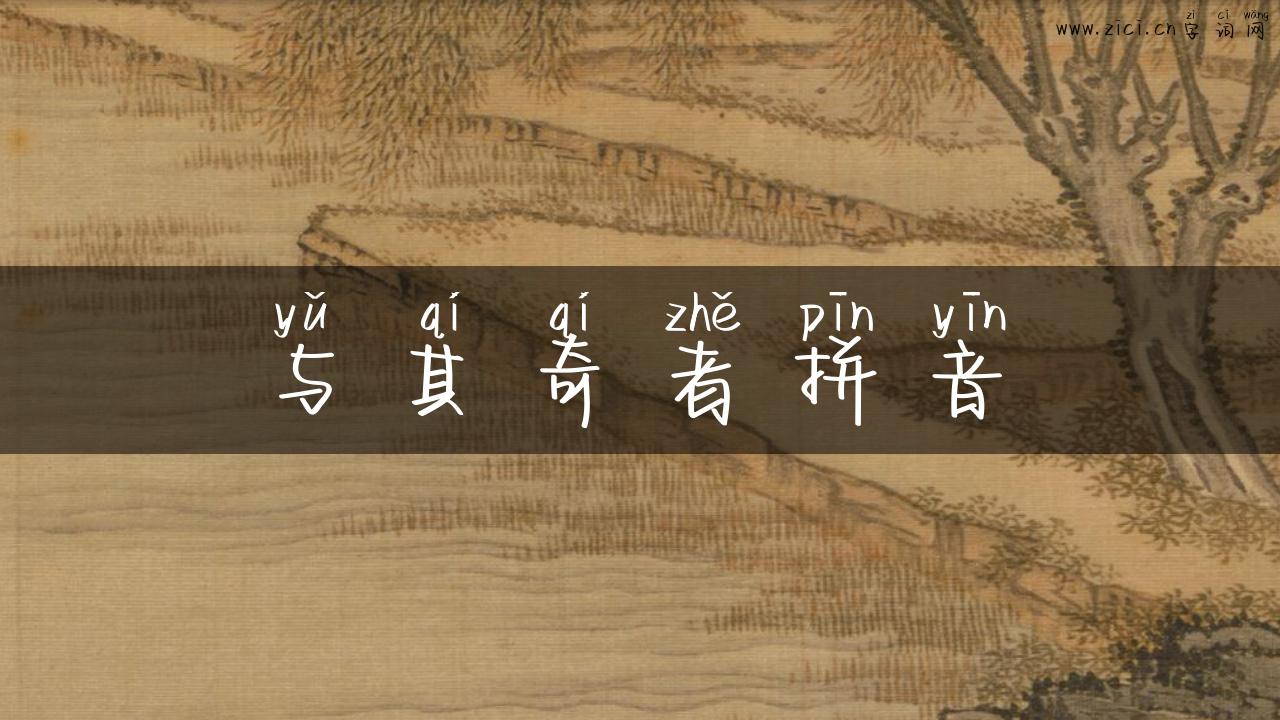 zì cí wǎng
www.zici.cn字词网
yǔ qí qí zhě pīn yīn
与其奇者拼音